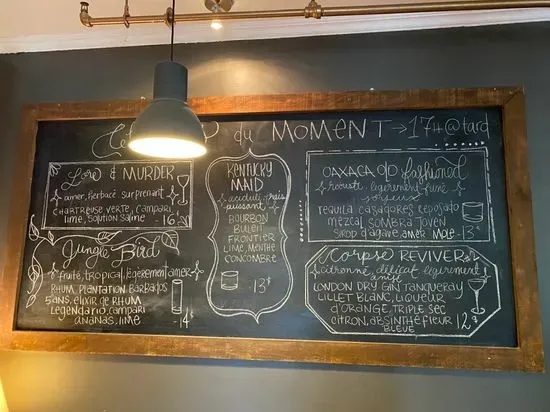 du MOMENT → 17H @ tard
Love & MURDER
amer, herbacé surprenant
CHARTREUSE VERTE, CAMPARI,
LIME, SOLUTION SALINE
16.5$
Jungle Bird
fruité, tropical, légèrement amer
RHUM, PLANTATION BARBADOS
5 ANS, ELIXIR DE RHUM
LEGENDARIO, CAMPARI
ANANAS, LIME
14$
KENTUCKY
MAID
acidulé, frais
puissant
BOURBON
BULEIT
FRONTIER
LIME, MENTHE
CONCOMBRE
13$
OAXACA Old Fashioned
robuste, légèrement fumé
TEQUILA CAZADORES REPOSADO
MEZCAL SOMBRA JOVEN
SIROP D'AGAVE AMER MOLE - 13$
Corpse REVIVER
citronné, délicat légèrement
anisé
LONDON DRY GIN TANQUERAY
LILLET BLANC, LIQUEUR
D'ORANGE, TRIPLE SEC
CITRON, ABSINTHE FLEUR
BLEUE
12$